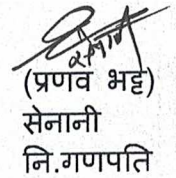 (प्रणव भट्ट)
सेनानी
नि.गणपति